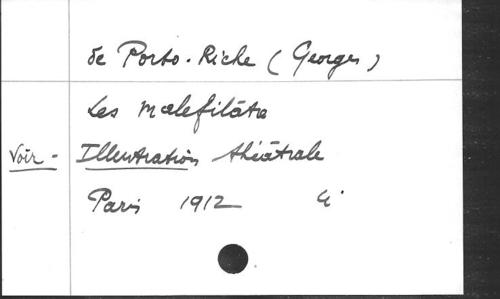 de Porto-Riche (Georges)
Les Malefilâtre
Voir - Illustration théâtrale
Paris 1912 4°